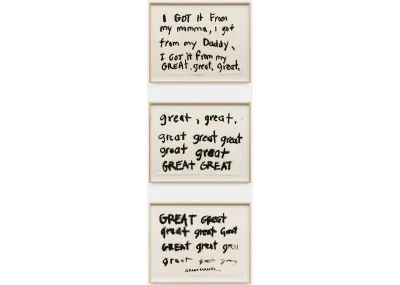 I GOT it From
my momma, i got
from my Daddy,
I GOT it from my
GREAT, great, great,
great, great,
great great great
great great
GREAT GREAT
GREAT Great
great great Great
GREAT great great
great great great